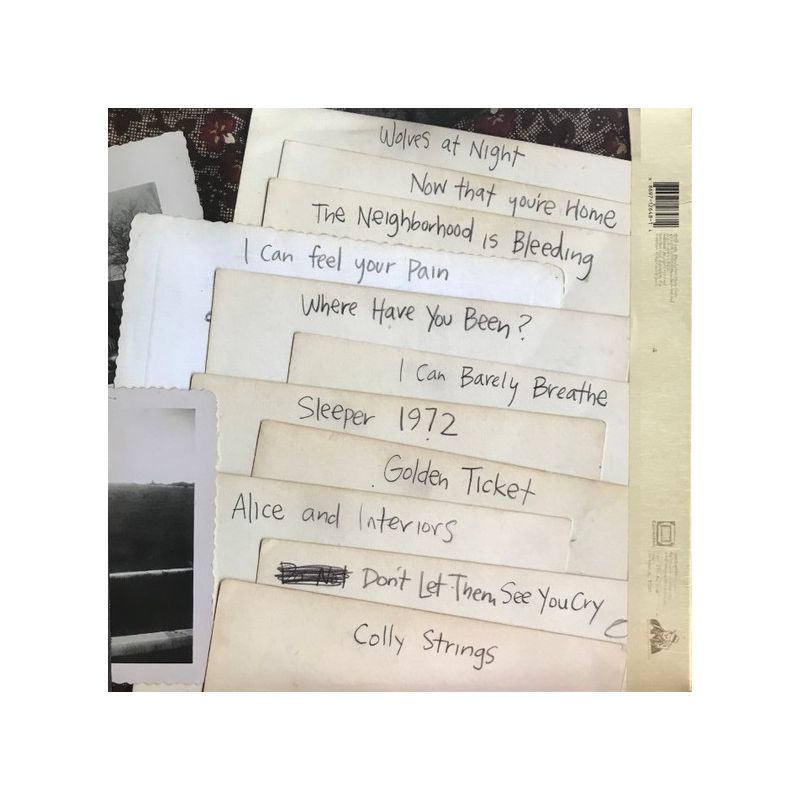 Wolves at Night
Now that you're Home
The Neighborhood is Bleeding
I Can feel your Pain
Where Have You Been?
I Can Barely Breathe
Sleeper 1972
Golden Ticket
Alice and Interiors
Don't Let Them See You Cry
Colly Strings